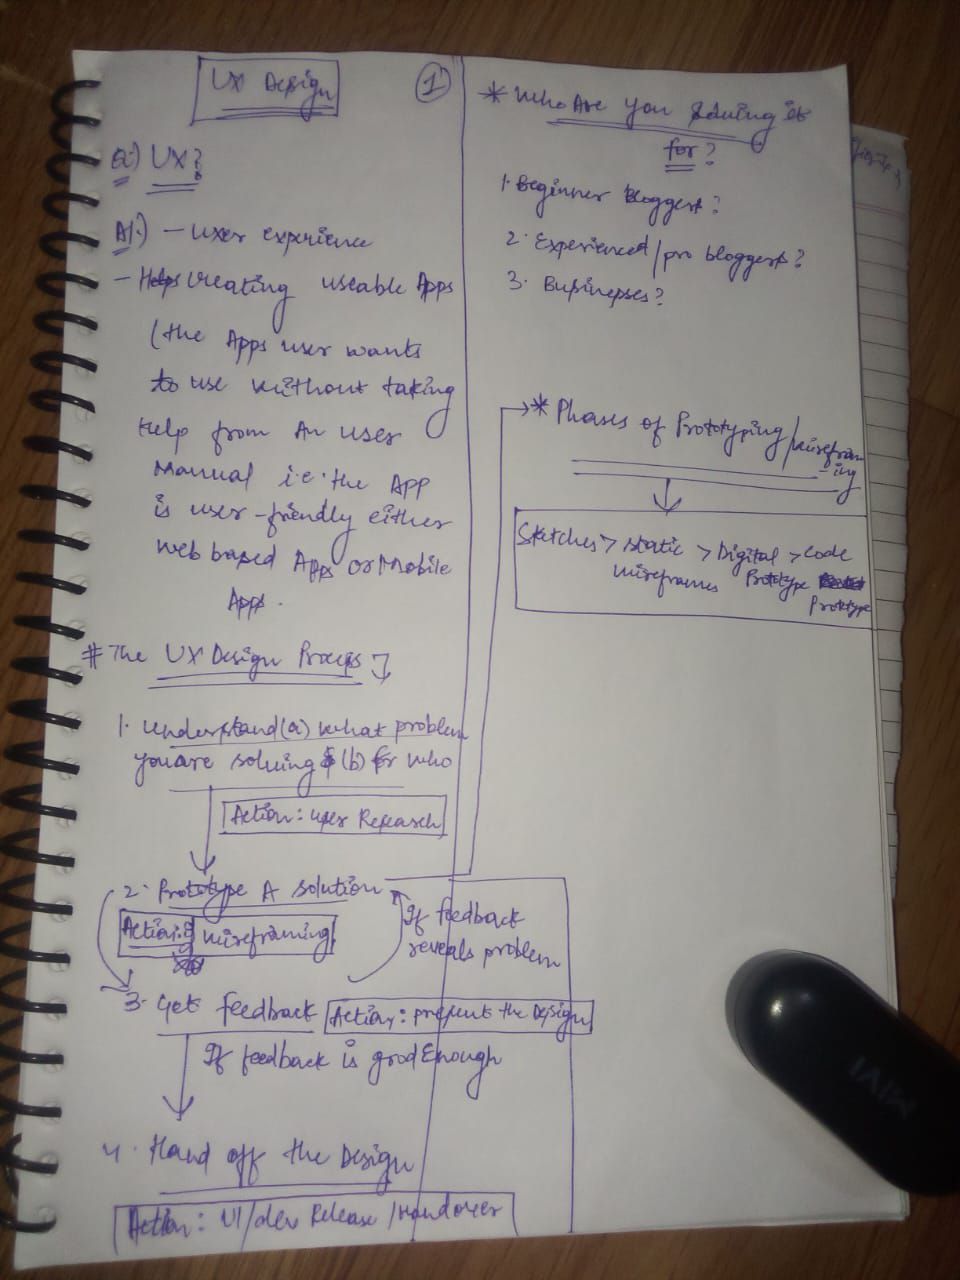 UX Design
1
Q.) UX?
A1.) - user experience
- Helps creating useable Apps
(the Apps user wants
to use without taking
Help from An user
Manual i.e. the APP
is user-friendly either
web based Apps or Mobile
Apps.
# The UX Design Process
1. Understand (a) what problem
you are solving & (b) for who
Action: user Research
2. Prototype A solution
Action: wireframing
If feedback
reveals problem
3. Get feedback
Action: present the Design
If feedback is good Enough
4. Hand off the Design
Action: UI/dev Release/Handover
* Who Are you solving it
for?
1. Beginner bloggers?
2. Experienced/pro bloggers?
3. Businesses?
* Phases of Prototyping/wirefram
-ing
Sketches > static > Digital > code
wireframes Prototype
Prototype
MIVI